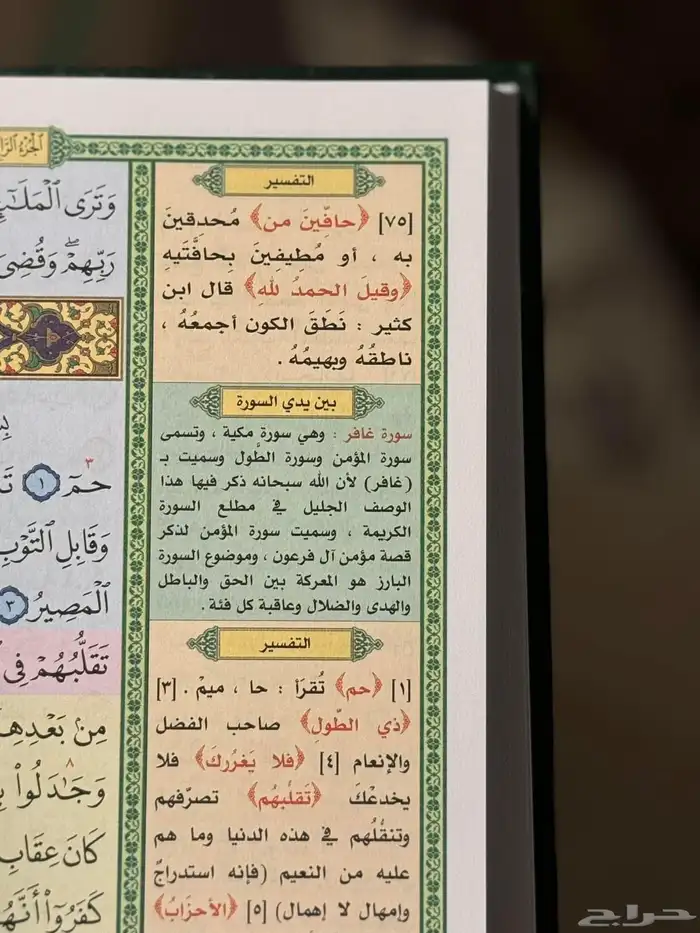 الجزء الرا
التفسير
[٧٥] ﴿حافِّينَ من﴾ مُحدقينَ
به ، أو مُطيفينَ بحافَّتَيهِ
﴿وقيلَ الحمدُ للهِ﴾ قال ابن
كثير : نَطَقَ الكون أجمعُهُ ،
ناطقُهُ وبهيمُهُ .
بين يدي السورة
سورة غافر : وهي سورة مكية ، وتسمى
سورة المؤمن وسورة الطَّول وسميت بـ
(غافر) لأن الله سبحانه ذكر فيها هذا
الوصف الجليل في مطلع السورة
الكريمة ، وسميت سورة المؤمن لذكر
قصة مؤمن آل فرعون ، وموضوع السورة
البارز هو المعركة بين الحق والباطل
والهدى والضلال وعاقبة كل فئة .
التفسير
[١] ﴿حم﴾ تُقرَأ : حا ، ميمْ . [٣]
﴿ذي الطَّولِ﴾ صاحب الفضل
والإنعام [٤] ﴿فلا يَغرُركَ﴾ فلا
يخدعْكَ ﴿تَقلُّبهُم﴾ تصرّفهم
وتنقُّلُهم في هذه الدنيا وما هم
عليه من النعيم (فإنه استدراجٌ
وإمهال لا إهمال) [٥] ﴿الأحزابُ﴾
وَتَرَى ٱلْمَلَـٰٓئِ
رَبِّهِمْ ۖ وَقُضِىَ
حمٓ ١ تَ
وَقَابِلِ ٱلتَّوْبِ
ٱلْمَصِيرُ ٣
تَقَلُّبُهُمْ فِى
مِنۢ بَعْدِهِ
وَجَـٰدَلُوا۟ بِ
كَانَ عِقَابِ
كَفَرُوٓا۟ أَنَّهُ
حراج